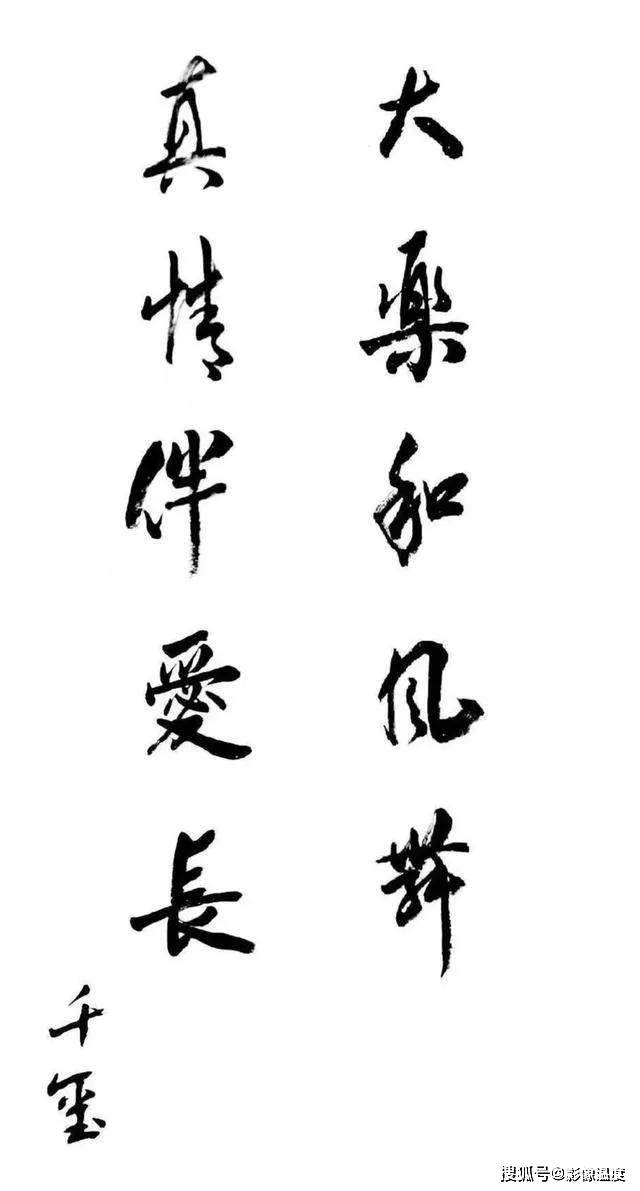 大樂和風舞
真情伴愛長
千玺
搜狐号@影像温度